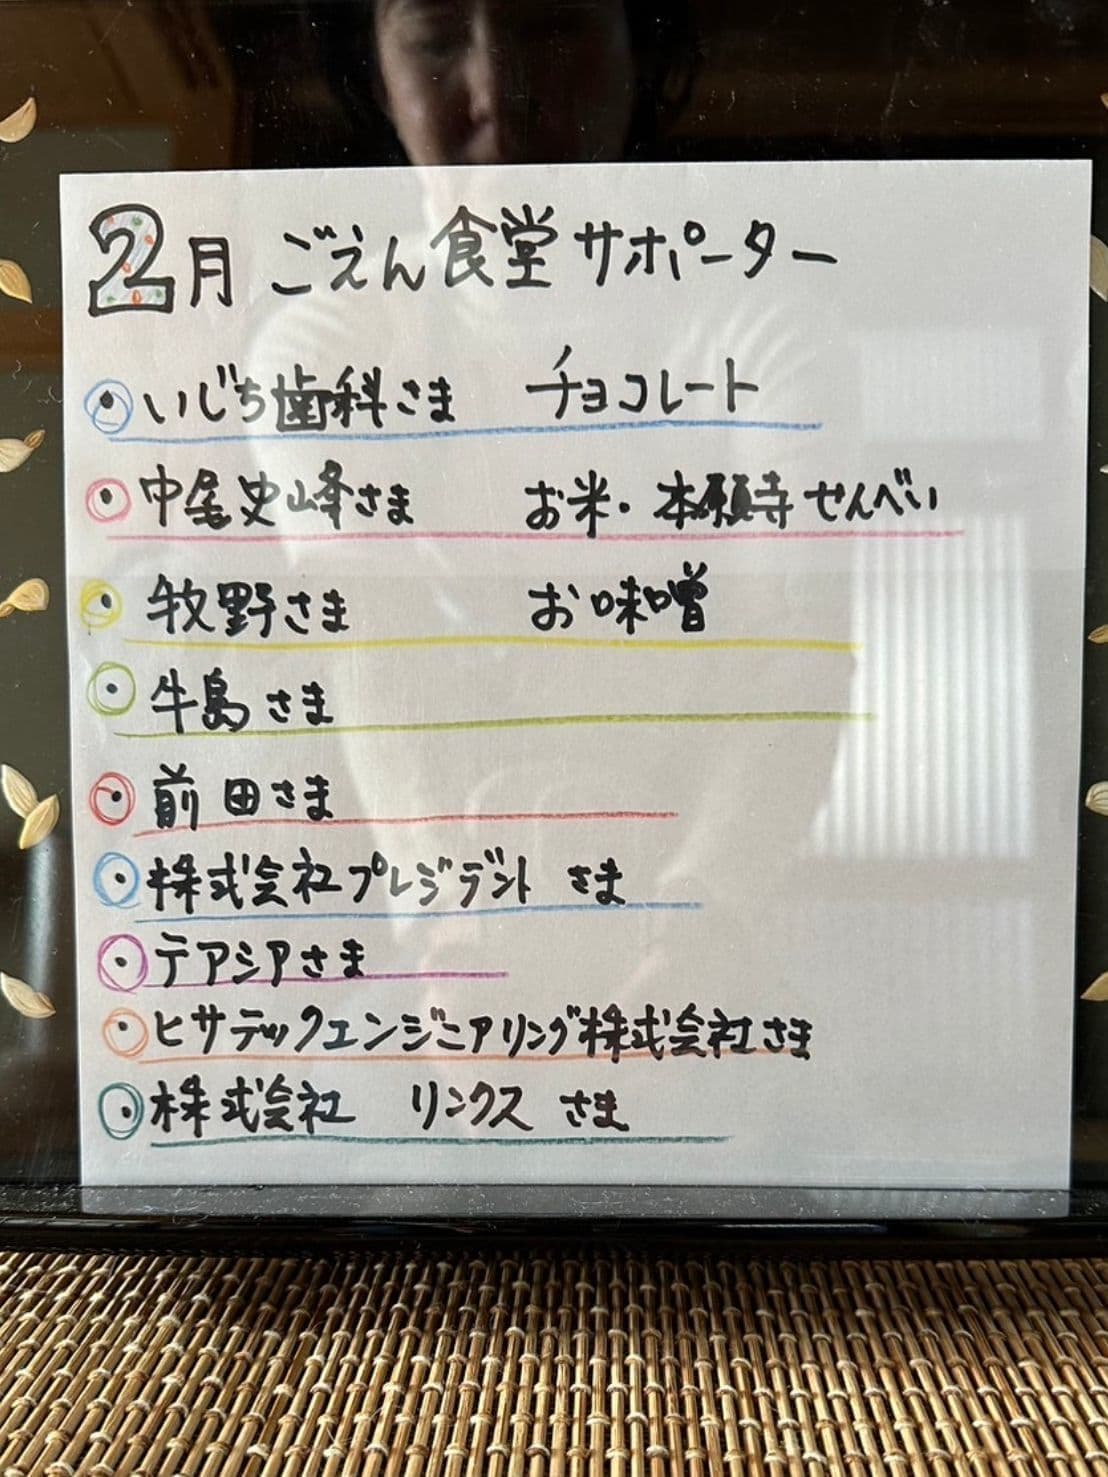 2月 ごえん食堂 サポーター
いじち歯科さま チョコレート
中尾史峰さま お米・本願寺せんべい
牧野さま お味噌
牛島さま
前田さま
株式会社プレジデント さま
テアシアさま
ヒサテックエンジニアリング株式会社さま
株式会社 リンクス さま